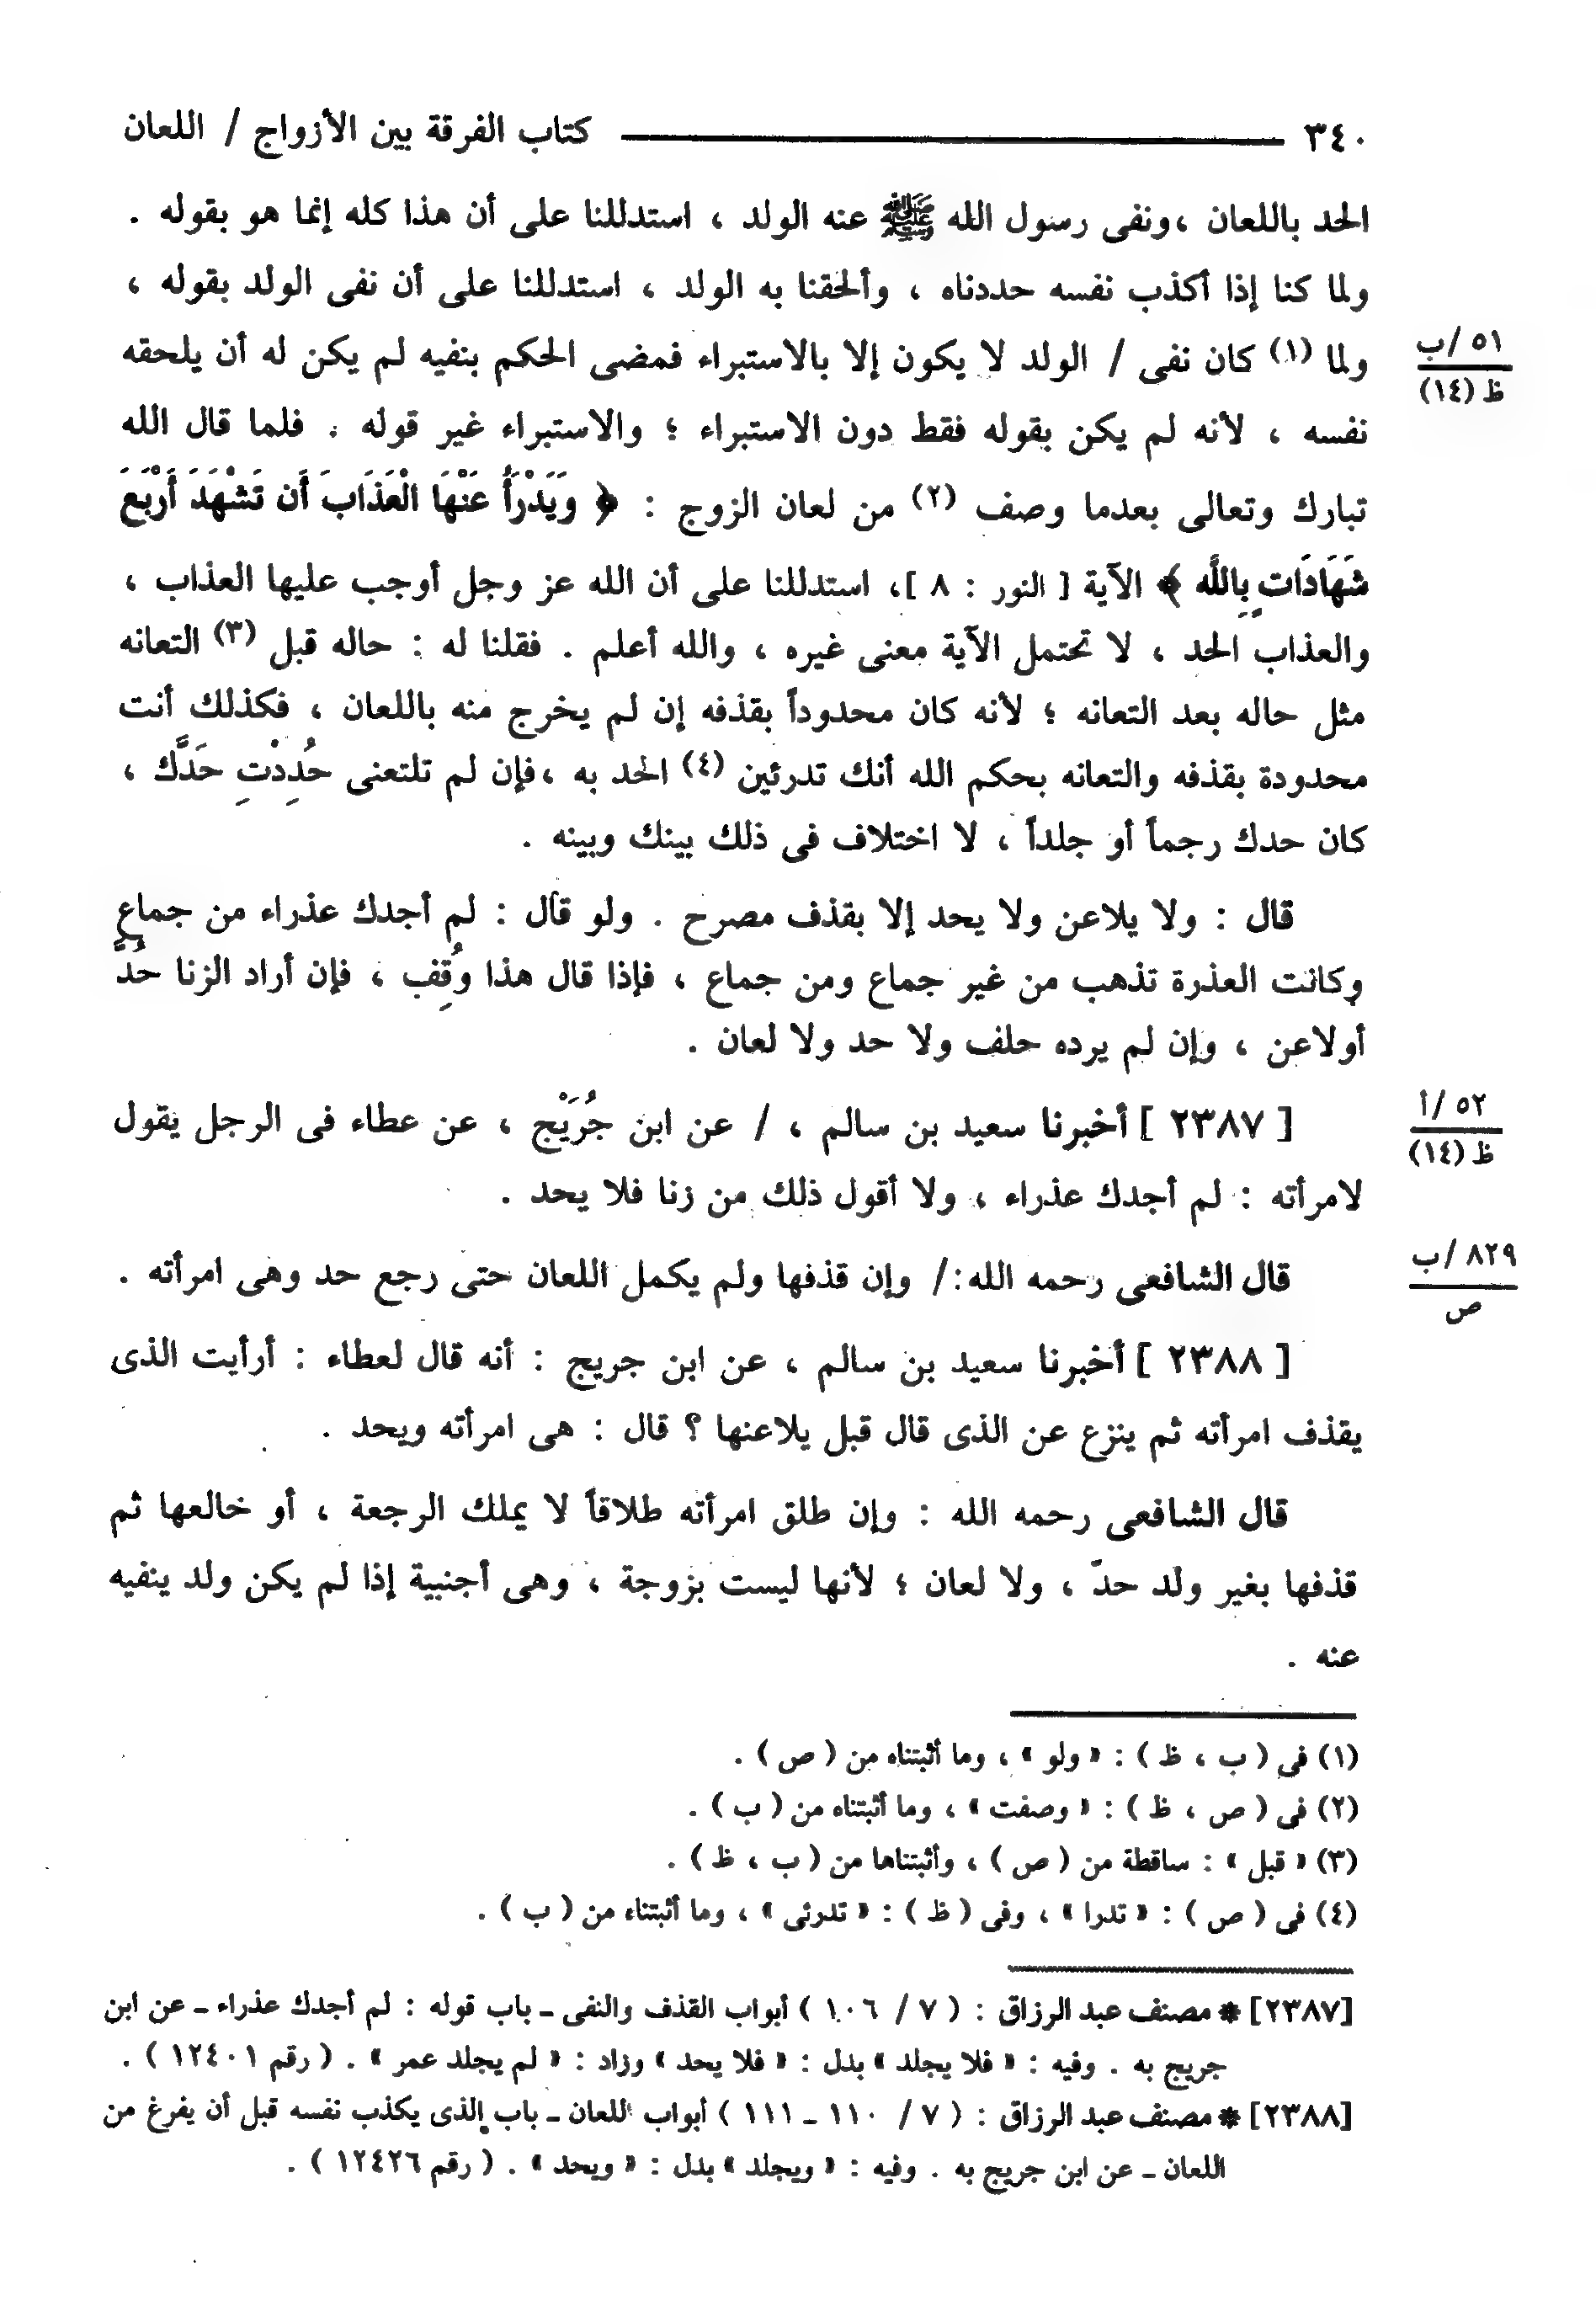 ٣٤٠ كتاب الفرقة بين الأزواج / اللعان
الحد باللعان ،ونفى رسول الله ﷺ عنه الولد ، استدللنا على أن هذا كله إنما هو بقوله .
ولما كنا إذا أكذب نفسه حددناه ، وألحقنا به الولد ، استدللنا على أن نفى الولد بقوله ،
ولما (١) كان نفى / الولد لا يكون إلا بالاستبراء فمضى الحكم بنفيه لم يكن له أن يلحقه
٥١ /ب
ظ (١٤)
نفسه ، لأنه لم يكن بقوله فقط دون الاستبراء ؛ والاستبراء غير قوله . فلما قال الله
تبارك وتعالى بعدما وصف (٢) من لعان الزوج : ﴿ وَيَدْرَأُ عَنْهَا الْعَذَابَ أَن تَشْهَدَ أَرْبَعَ
شَهَادَاتٍ بِاللَّهِ ﴾ الآية [ النور : ٨ ]، استدللنا على أن الله عز وجل أوجب عليها العذاب ،
والعذاب الحد ، لا تحتمل الآية معنى غيره ، والله أعلم . فقلنا له : حاله قبل (٣) التعانه
مثل حاله بعد التعانه ؛ لأنه كان محدوداً بقذفه إن لم يخرج منه باللعان ، فكذلك أنت
محدودة بقذفه والتعانه بحكم الله أنك تدرئين (٤) الحد به ،فإن لم تلتعنى حُدِدْتِ حَدَّكِ ،
كان حدك رجماً أو جلداً ، لا اختلاف فى ذلك بينك وبينه .
قال : ولا يلاعن ولا يحد إلا بقذف مصرح . ولو قال : لم أجدك عذراء من جماعٍ
وكانت العذرة تذهب من غير جماع ومن جماع ، فإذا قال هذا وُقِف ، فإن أراد الزنا حُدَّ
أولاعن ، وإن لم يرده حلف ولا حد ولا لعان .
[ ٢٣٨٧ ] أخبرنا سعيد بن سالم ، / عن ابن جُرَيْج ، عن عطاء فى الرجل يقول
٥٢ /أ
ظ (١٤)
لامرأته : لم أجدك عذراء ، ولا أقول ذلك من زنا فلا يحد .
قال الشافعى رحمه الله :/ وإن قذفها ولم يكمل اللعان حتى رجع حد وهى امرأته .
٨٢٩ /ب
ص
[ ٢٣٨٨ ] أخبرنا سعيد بن سالم ، عن ابن جريج : أنه قال لعطاء : أرأيت الذى
يقذف امرأته ثم ينزع عن الذى قال قبل يلاعنها ؟ قال : هى امرأته ويحد .
قال الشافعى رحمه الله : وإن طلق امرأته طلاقاً لا يملك الرجعة ، أو خالعها ثم
قذفها بغير ولد حدّ ، ولا لعان ؛ لأنها ليست بزوجة ، وهى أجنبية إذا لم يكن ولد ينفيه
عنه .
(١) فى ( ب ، ظ ) : « ولو » ، وما أثبتناه من ( ص ) .
(٢) فى ( ص ، ظ ) : « وصفت » ، وما أثبتناه من ( ب ) .
(٣) « قبل » : ساقطة من ( ص ) ، وأثبتناها من ( ب ، ظ ) .
(٤) فى ( ص ) : « تدرا » ، وفى ( ظ ) : « تدرئى » ، وما أثبتناه من ( ب ) .
[٢٣٨٧] * مصنف عبد الرزاق : ( ٧ / ١٠٦ ) أبواب القذف والنفى ـ باب قوله : لم أجدك عذراء ـ عن ابن
جريج به . وفيه : « فلا يجلد » بدل : « فلا يحد » وزاد : « لم يجلد عمر » . ( رقم ١٢٤٠١ ) .
[٢٣٨٨] * مصنف عبد الرزاق : ( ٧ / ١١٠ ـ ١١١ ) أبواب اللعان ـ باب الذى يكذب نفسه قبل أن يفرغ من
اللعان ـ عن ابن جريج به . وفيه : « ويجلد » بدل : « ويحد » . ( رقم ١٢٤٢٦ ) .